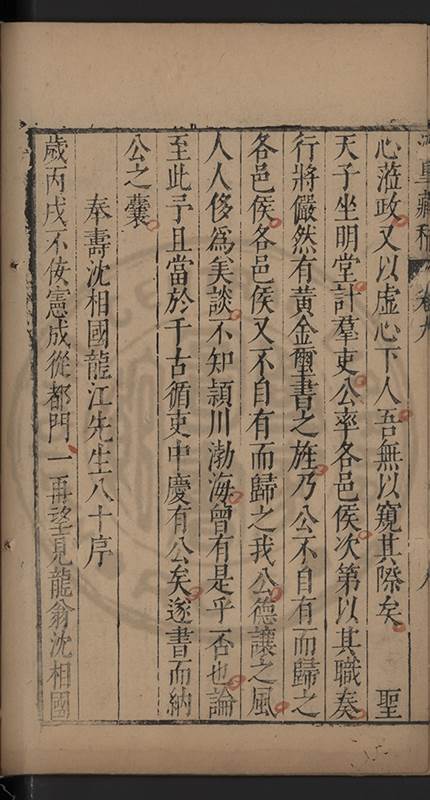 藏稿 卷九
心蒞政又以虛心下人吾無以窺其際矣 聖
天子坐明堂計羣吏公率各邑侯次第以其職奏
行將儼然有黃金璽書之旌乃公不自有而歸之
各邑侯各邑侯又不自有而歸之我公德讓之風
人人侈為美談不知潁川渤海曾有是乎否也論
至此予且當於千古循吏中慶有公矣遂書而納
公之囊
奉壽沈相國龍江先生八十序
歲丙戌不佞憲成從都門一再望見龍翁沈相國